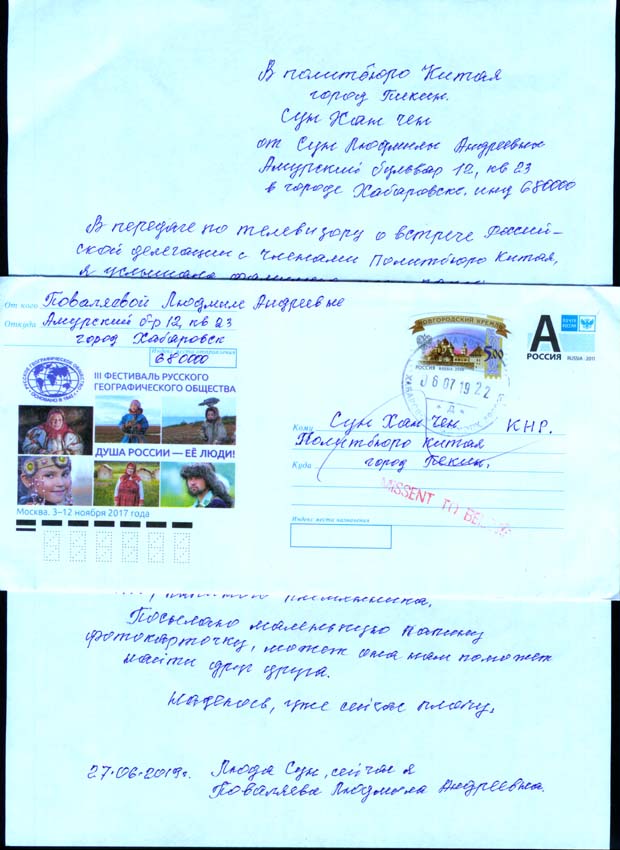 В политбюро Китая
город Пекин.
Сун Хан Чен
от Сун Людмилы Андреевны
Амурский бульвар 12, кв 23
в городе Хабаровске. инд 680000
В передаче по телевизору о встрече Россий-
ской делегации с членами Политбюро Китая,
я услышала
От кого Поваляевой Людмиле Андреевне
Откуда Амурский б-р 12, кв 23
город Хабаровск
680000
РУССКОЕ ГЕОГРАФИЧЕСКОЕ ОБЩЕСТВО
ОСНОВАНО В 1845 г.
III ФЕСТИВАЛЬ РУССКОГО
ГЕОГРАФИЧЕСКОГО ОБЩЕСТВА
ДУША РОССИИ — ЕЁ ЛЮДИ!
Москва. 3–12 ноября 2017 года
НОВГОРОДСКИЙ КРЕМЛЬ
5,00
РОССИЯ RUSSIA 2009
06 07 19 22
А
РОССИЯ RUSSIA 2011
ПОЧТА РОССИИ
Кому Сун Хан Чен КНР.
Политбюро Китая
Куда город Пекин.
MISSENT TO
Индекс места назначения
племянника.
Посылаю маленькую копию
фотокарточку, может она нам поможет
найти друг друга.
Надеюсь, уже сейчас плачу.
27.06.2019г. Люда Сун, сейчас я
Поваляева Людмила Андреевна.